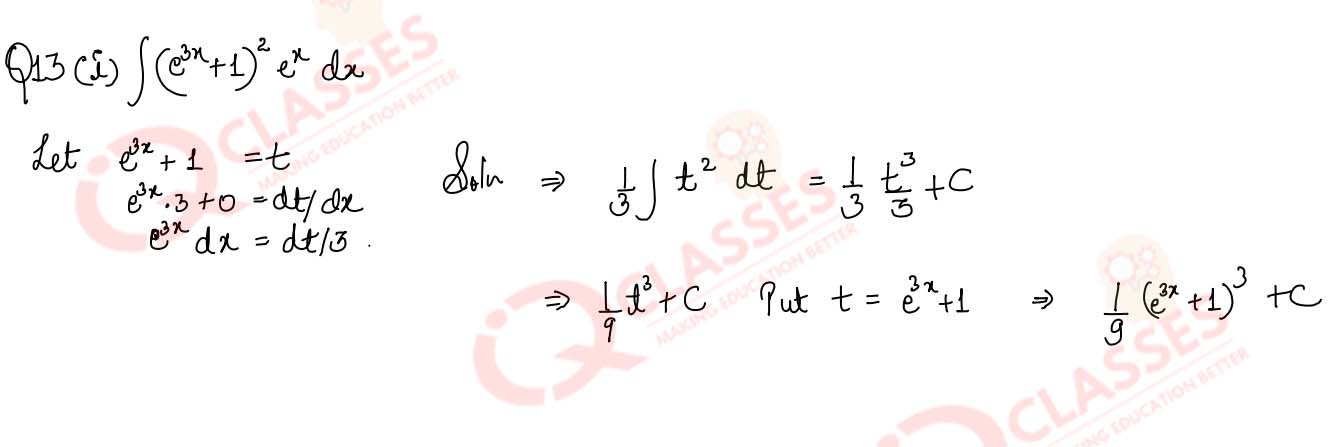 Q13 (i) ∫(e^{3x}+1)^2 e^x dx
Let e^{3x} + 1 = t
e^{3x} . 3 + 0 = dt/dx
e^{3x} dx = dt/3 .
Soln ⇒ 1/3 ∫ t^2 dt = 1/3 t^3/3 + C
⇒ 1/9 t^3 + C Put t = e^{3x}+1 ⇒ 1/9 (e^{3x} + 1)^3 + C
iQ CLASSES
MAKING EDUCATION BETTER
iQ CLASSES
MAKING EDUCATION BETTER
iQ CLASSES
MAKING EDUCATION BETTER